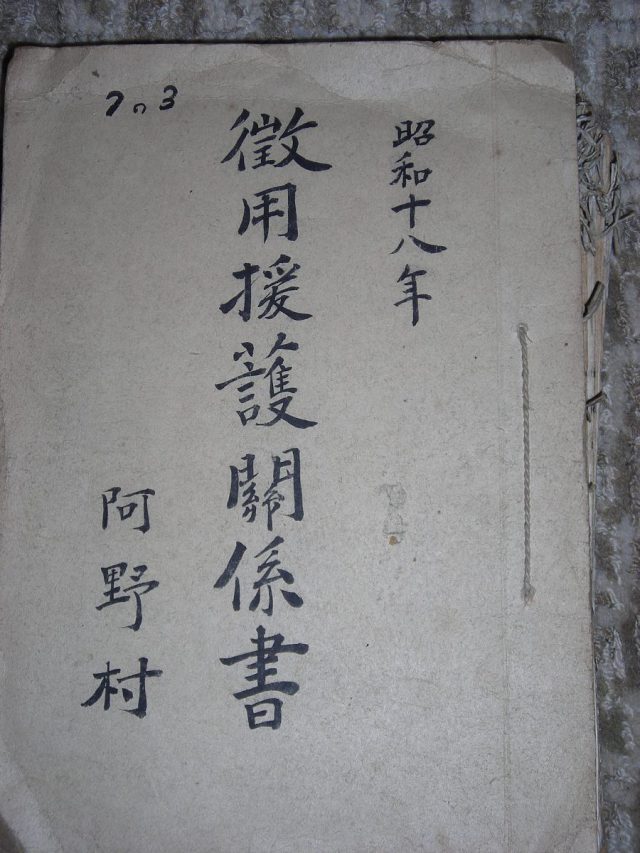 昭和十八年
徴用援護關係書
阿野村
7の3